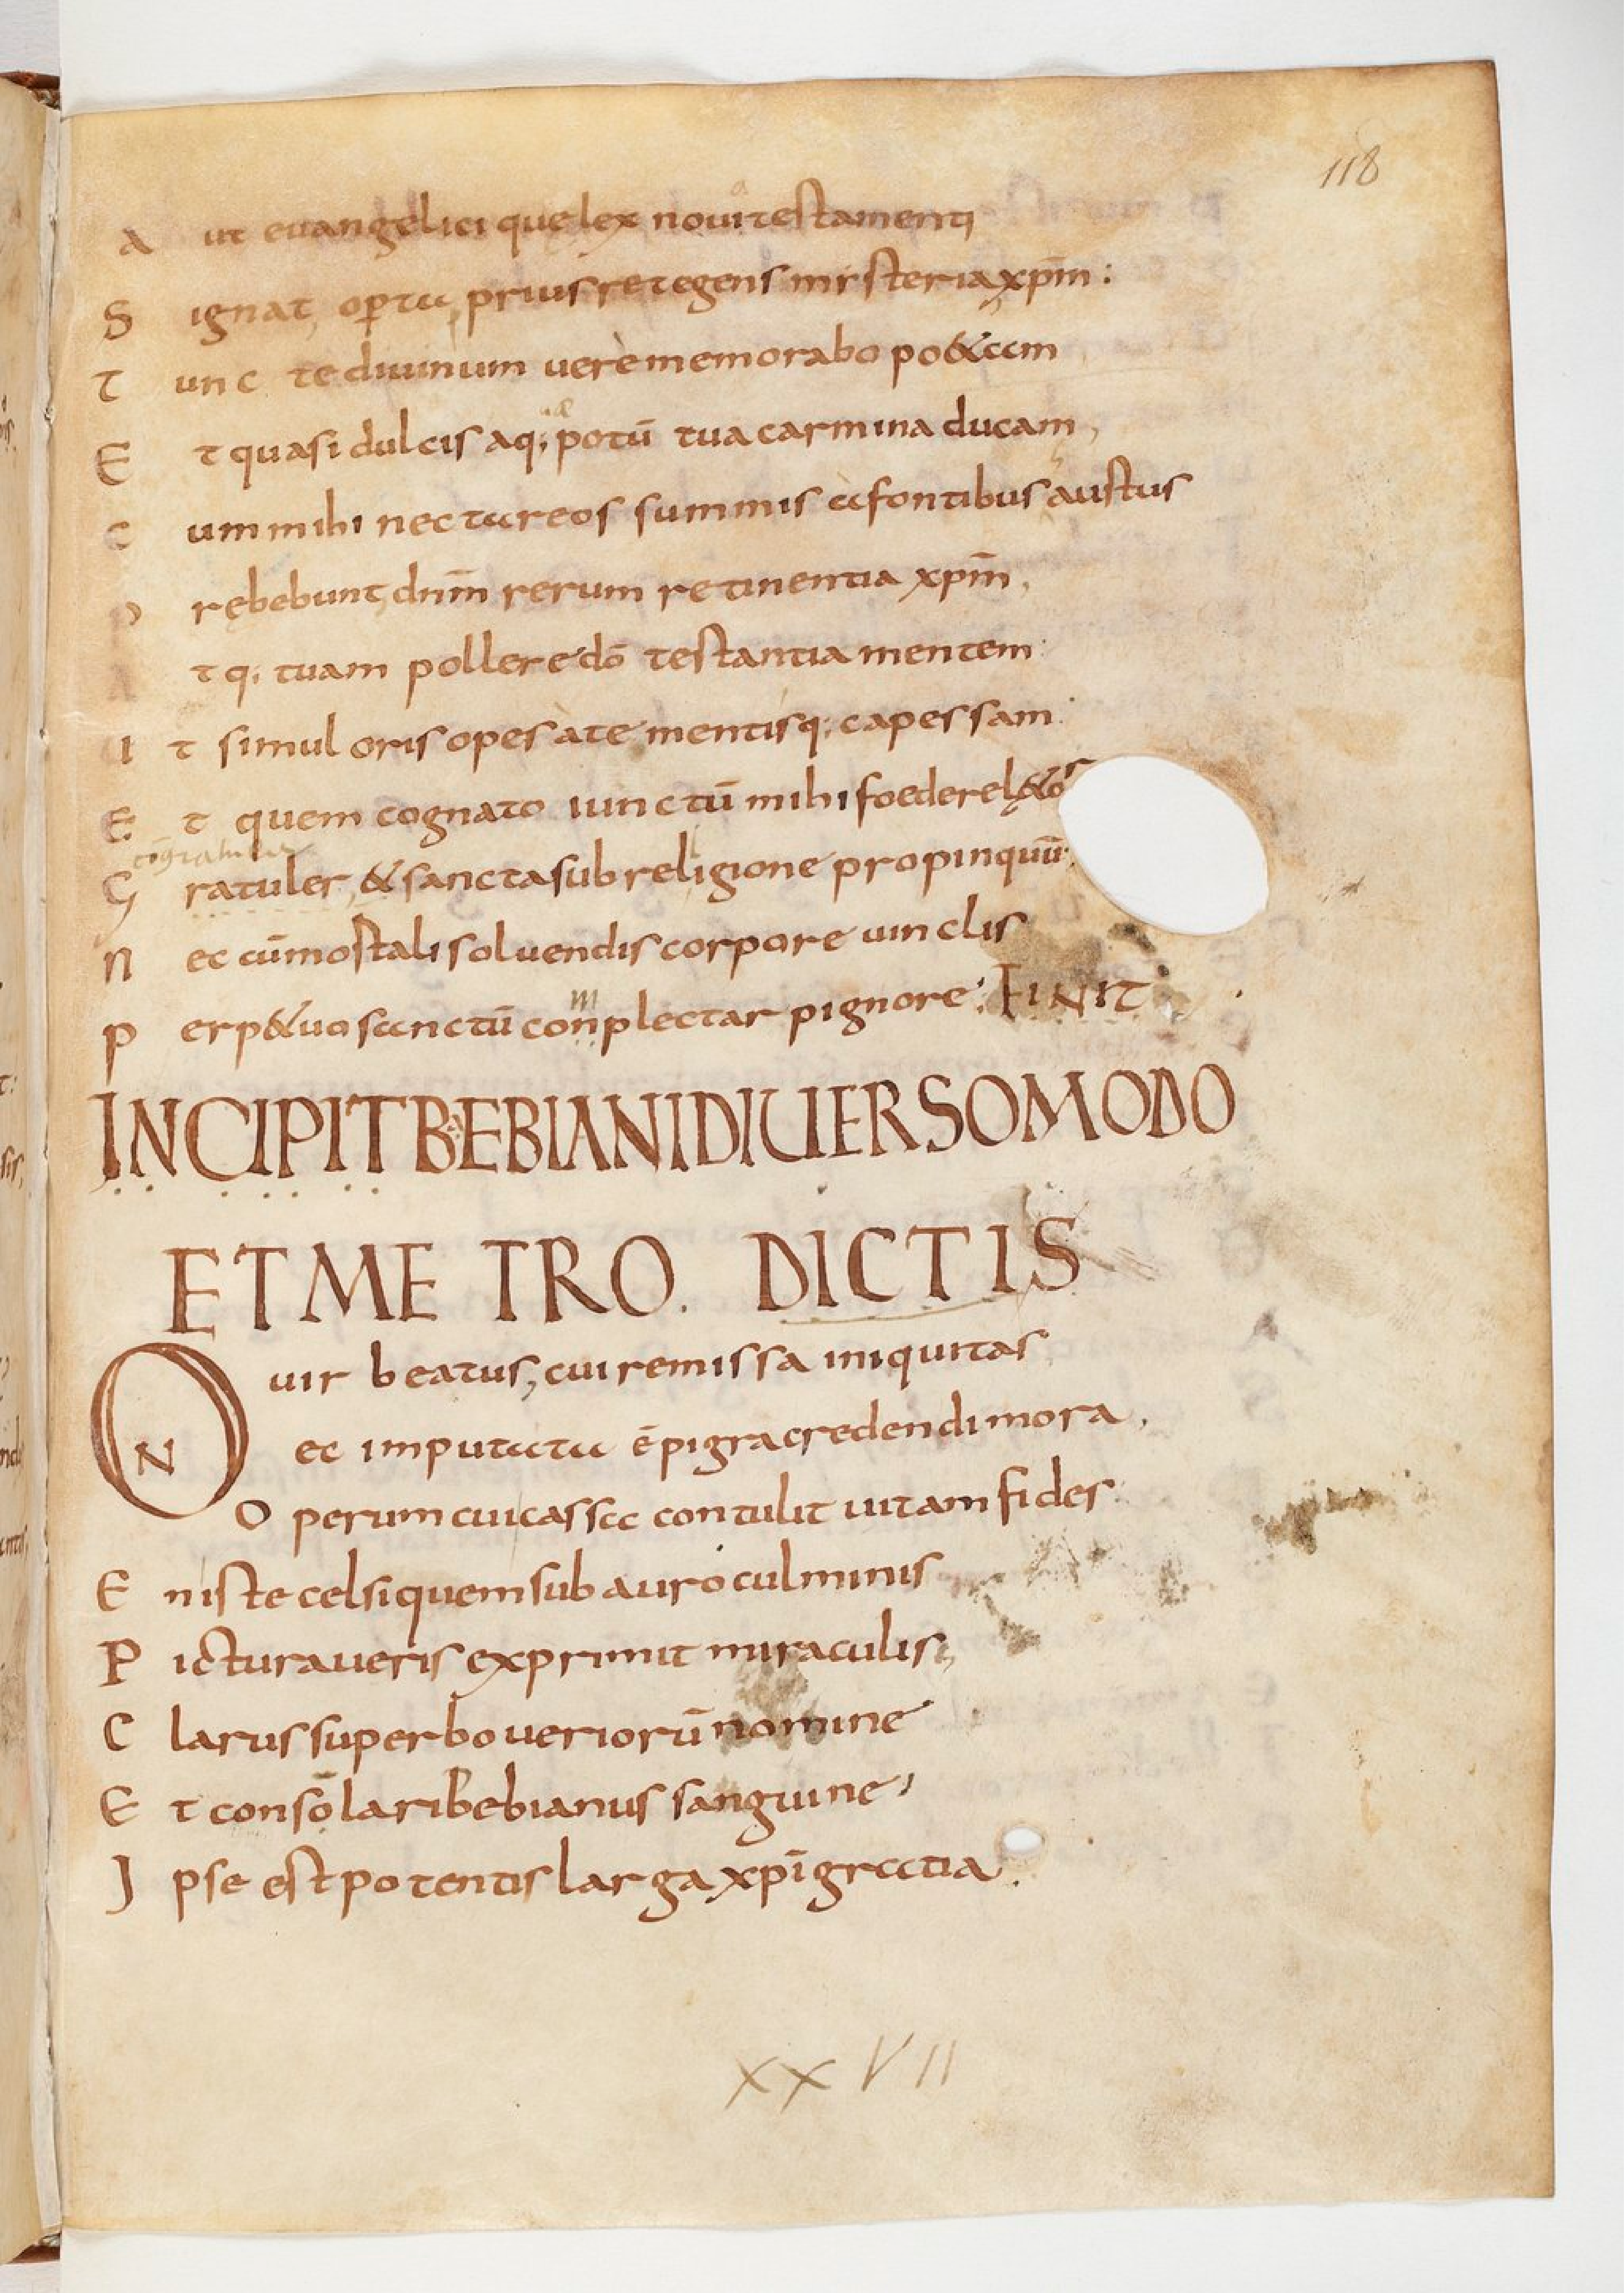 118
A ut euangelici que lex noui testamenti
S ignat, optu prius retegens misteria xp̄m:
T unc te diuinum uere memorabo po&am
E t quasi dulcis aq; potū tua carmina ducam,
C um mihi nectareos summis a fontibus austus
P rębebunt, dn̄m rerum retinentia xp̄m,
A t q; tuam pollere dō testantia mentem
U t simul oris opes a te mentisq; capessam
E t quem cognato iunctū mihi foedere l&or
congratuler
G ratuler, & sancta sub religione propinquū
N ec cū mostali soluendis corpore uinclis
P erp&uo sanctū conplectar pignore: FINIT
INCIPIT BEBIANI DIUERSO MODO
ET METRO. DICTIS
O uir beatus, cui remissa iniquitas
N ec imputata ē pigra credendi mora,
O perum cui cassa contulit uitam fides
E n iste celsi quem sub auro culminis
P ictura ueris exprimit miraculis,
C larus superbo ueriorū nomine
E t consolari bebianus sanguine,
I pse est potentis larga xp̄i gratia.
XXVII